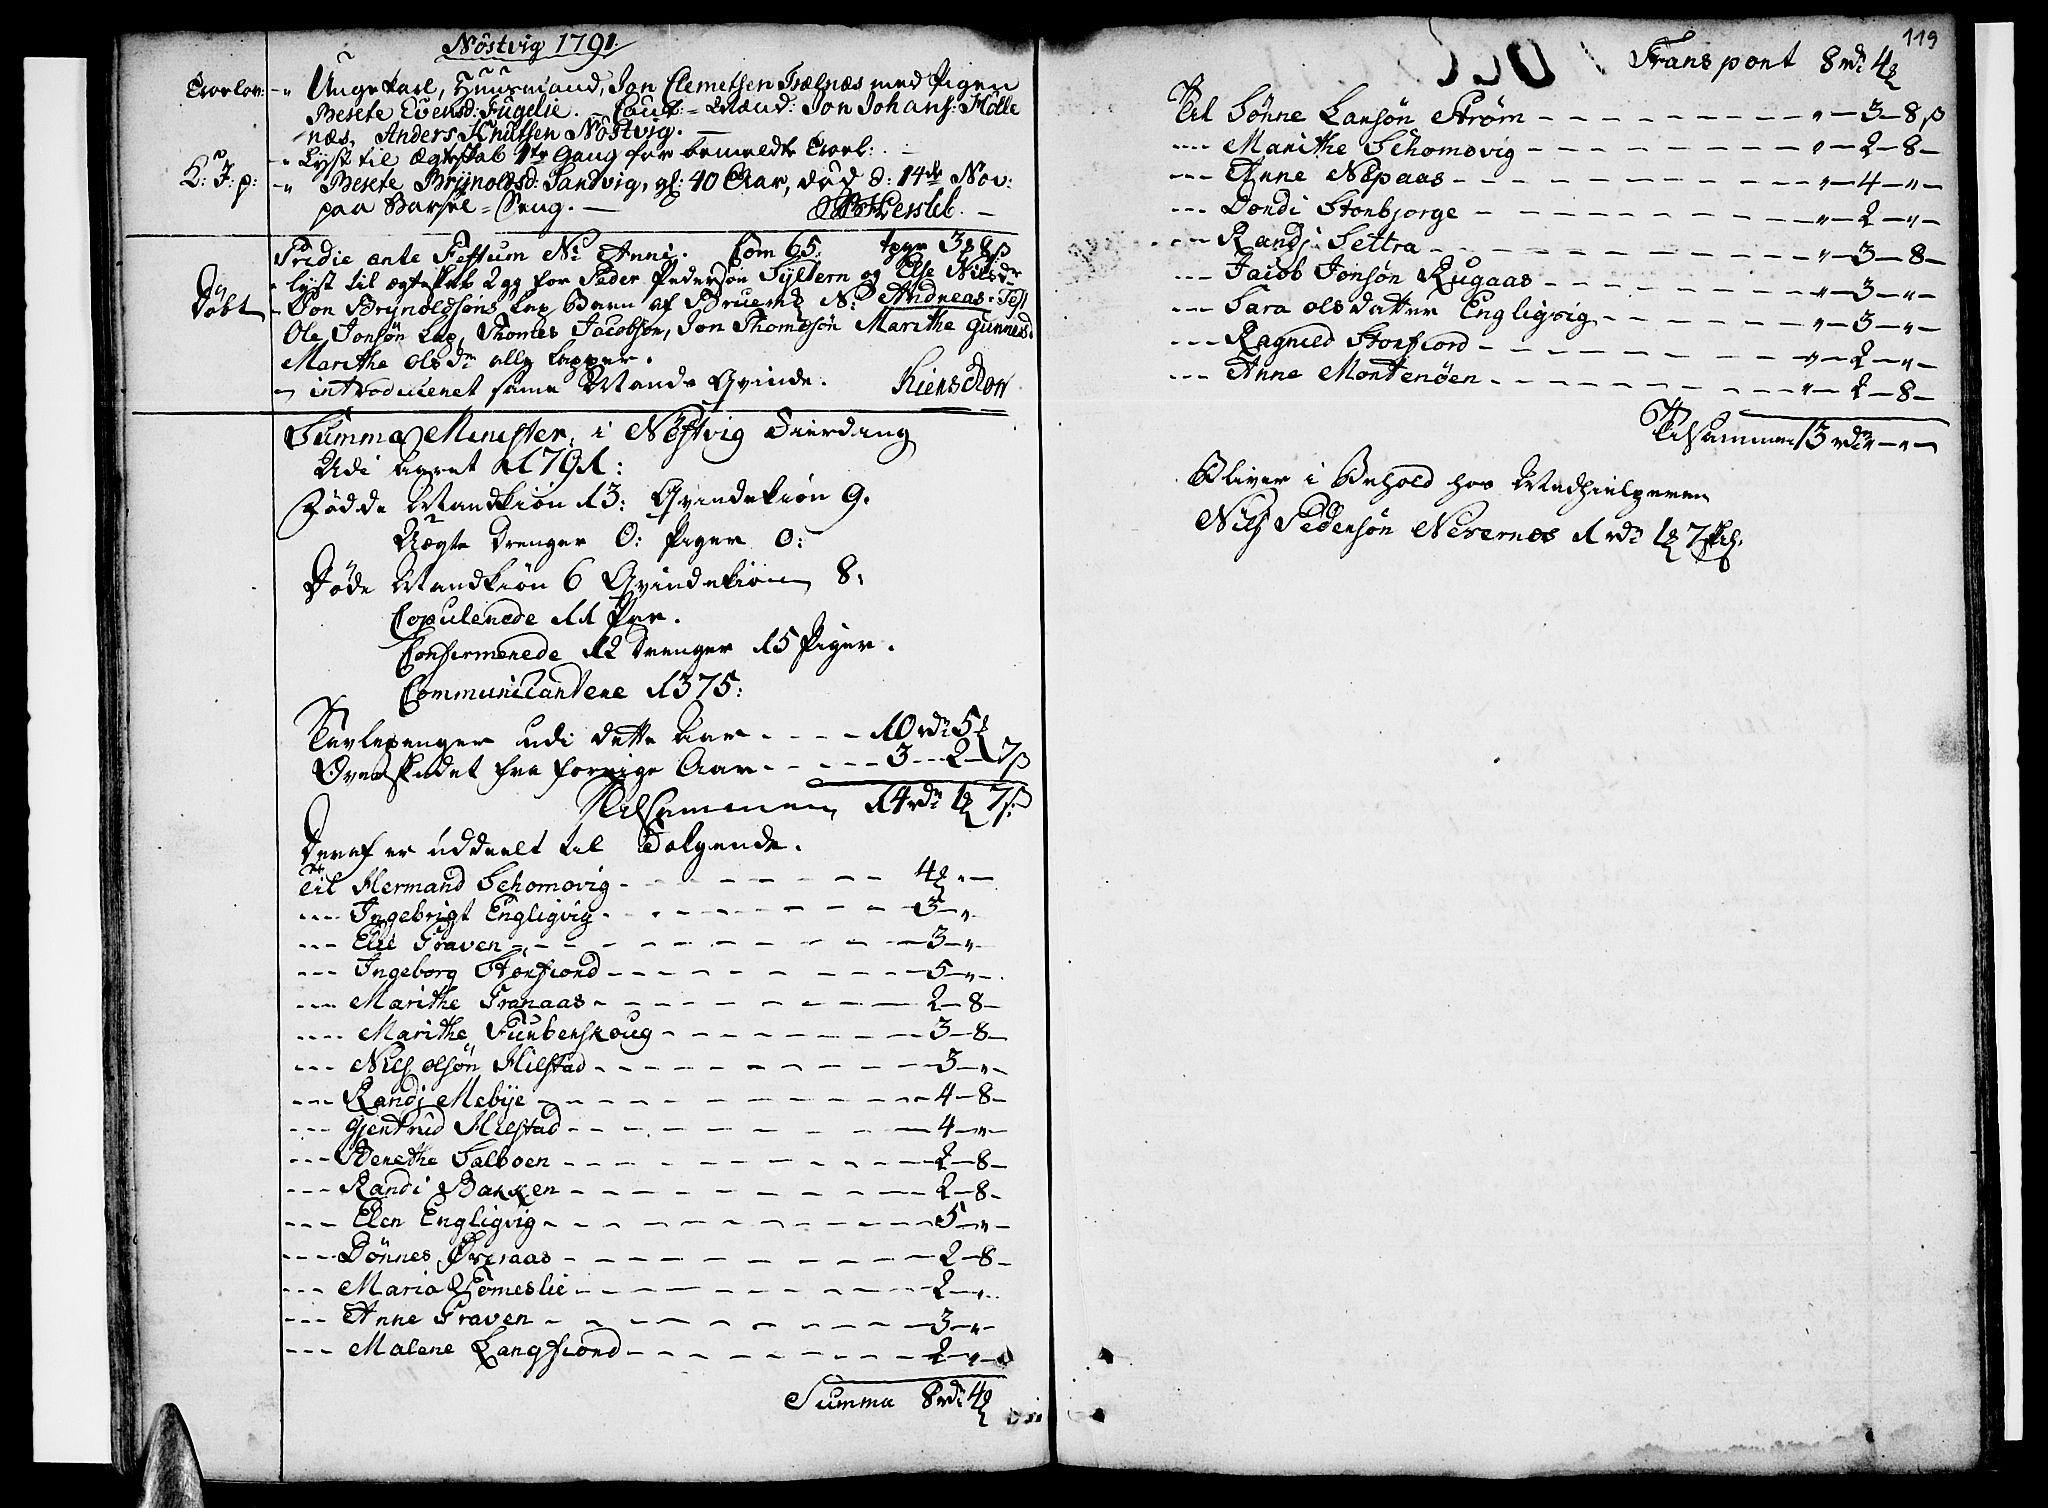 Nöstvig 1791.
Troelov: „ Unge Karl, Huusmand, Jon Clemetsen Træelnæs med Pigen
Berete Evensd: Fugelie. Caut: Mænd: Jon Johans: Holle
næs, Anders Knutsen Nöstvig. —
„ Lyst til Ægteskab 1te Gang for bemeldte Troel: —
K: J: p: „ Berete Brÿnoldsd: Sandvig, gl: 40 Aar, død d: 14de Nov:
paa Barsel = Seng. — Hersleb. —
Pridie ante Festum Ni Anni. Com 65. 
lyst til ægteskab 2 gg for Peder Pedersøn Syltern og Else Nilsdr
Døbt Jon Brynoldsøns Lap Barn af N: Andreas. Test
Ole Jonsøn Lap, Thomes Jacobsøn, Jon Thomesøn Marithe Gunnersd.
Marithe olsdr alle Lapper.
„ introduceret samme Mands Qvinde.
Summa Minister. i Nöstvig Fierding
Udi aaret 1791:
Fødde Mandkiön 13: Qvindekiön 9.
Uægte Drenger 0: Piger 0:
Døde Mandkiön 6 Qvindekiön 8:
Copulerede 11 Par.
Confirmerede 12 Drenger 15 Piger.
Communicantere 1375:
Tavlepenger udi dette Aar - - - - 10 rdr 5
Overskudet fra forrige Aar - - - - 3 - 2 - 7 ß
Tilsammen 14 rdr 1 7 ß
Deraf er uddeelt til Følgende.
til Hermand Schomovig - - - 4 „ —
--- Ingebrigt Engligvig - - - 3 - „
--- Elie Traven - - - 3 - „ -
--- Ingeborg Storfiord - - - 5 - „ -
--- Marithe Granaas - - - 2 - 8 -
--- Marithe Fuuberskoug - - - 3 - 8 -
--- Nils olsön Hilstad - - - 3 - „ -
--- Randi Mebye - - - 4 - 8 -
--- Gjertrud Hilstad - - - 4 - „ -
--- Berethe Salboen - - - 2 - 8 -
--- Randi Bakken - - - 2 - 8 -
--- Elen Engligvig - - - 5 - „ -
--- Dönnes Öreraas - - - 2 - 8 -
--- Maria Tomeslie - - - 2 - „ -
--- Anne Traven - - - 3 - „ -
--- Malene Langfiord - - - 2 - „ -
Summa 8 rdr 4
119
Transport 8 rdr 4
Til Sönne Larsön Ström - - - „ - 3 - 8 ß
--- Marithe Schomovig - - - „ - 2 - 8 -
--- Anne Nepaas - - - „ - 4 - „ -
--- Dordi Storbjorge - - - „ - 2 - „ -
--- Randi Settra - - - „ - 3 - 8 -
--- Jacob Jonsön Rugaas - - - „ - 3 - „ -
--- Sara olsdatter Engligvig - - - „ - 3 - „ -
--- Ragnild Storfiord - - - „ - 2 - „ -
--- Anne Mortenöen - - - „ - 2 - 8 -
Tilsammen 13 rdr „ - „ -
Bliver i Behold hos Medhielperen
Nils Pedersön Nerernes 1 rdr 1 7 sk.